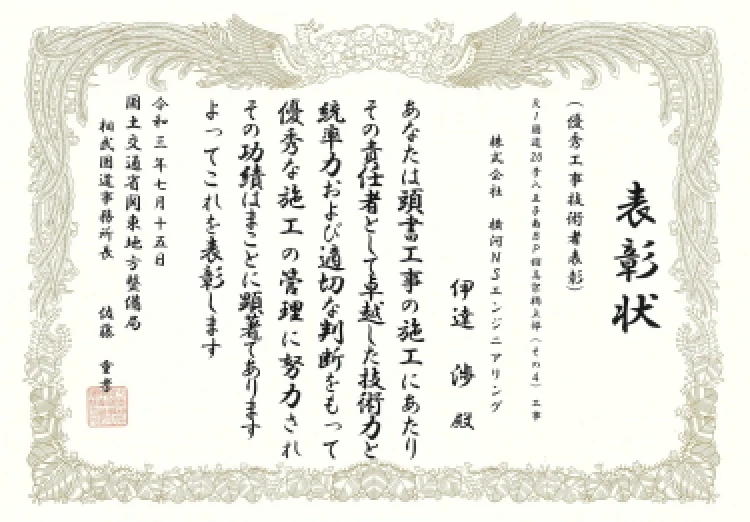 表彰状
(優秀工事技術者表彰)
R1国道20号八王子南BP館高架橋上部(その4)工事
株式会社 横河NSエンジニアリング
伊達 渉 殿
あなたは頭書工事の施工にあたり
その責任者として卓越した技術力と
統率力および適切な判断をもって
優秀な施工の管理に努力され
その功績はまことに顕著であります
よってこれを表彰します
令和三年七月十五日
国土交通省関東地方整備局
相武国道事務所長 佐藤 重孝